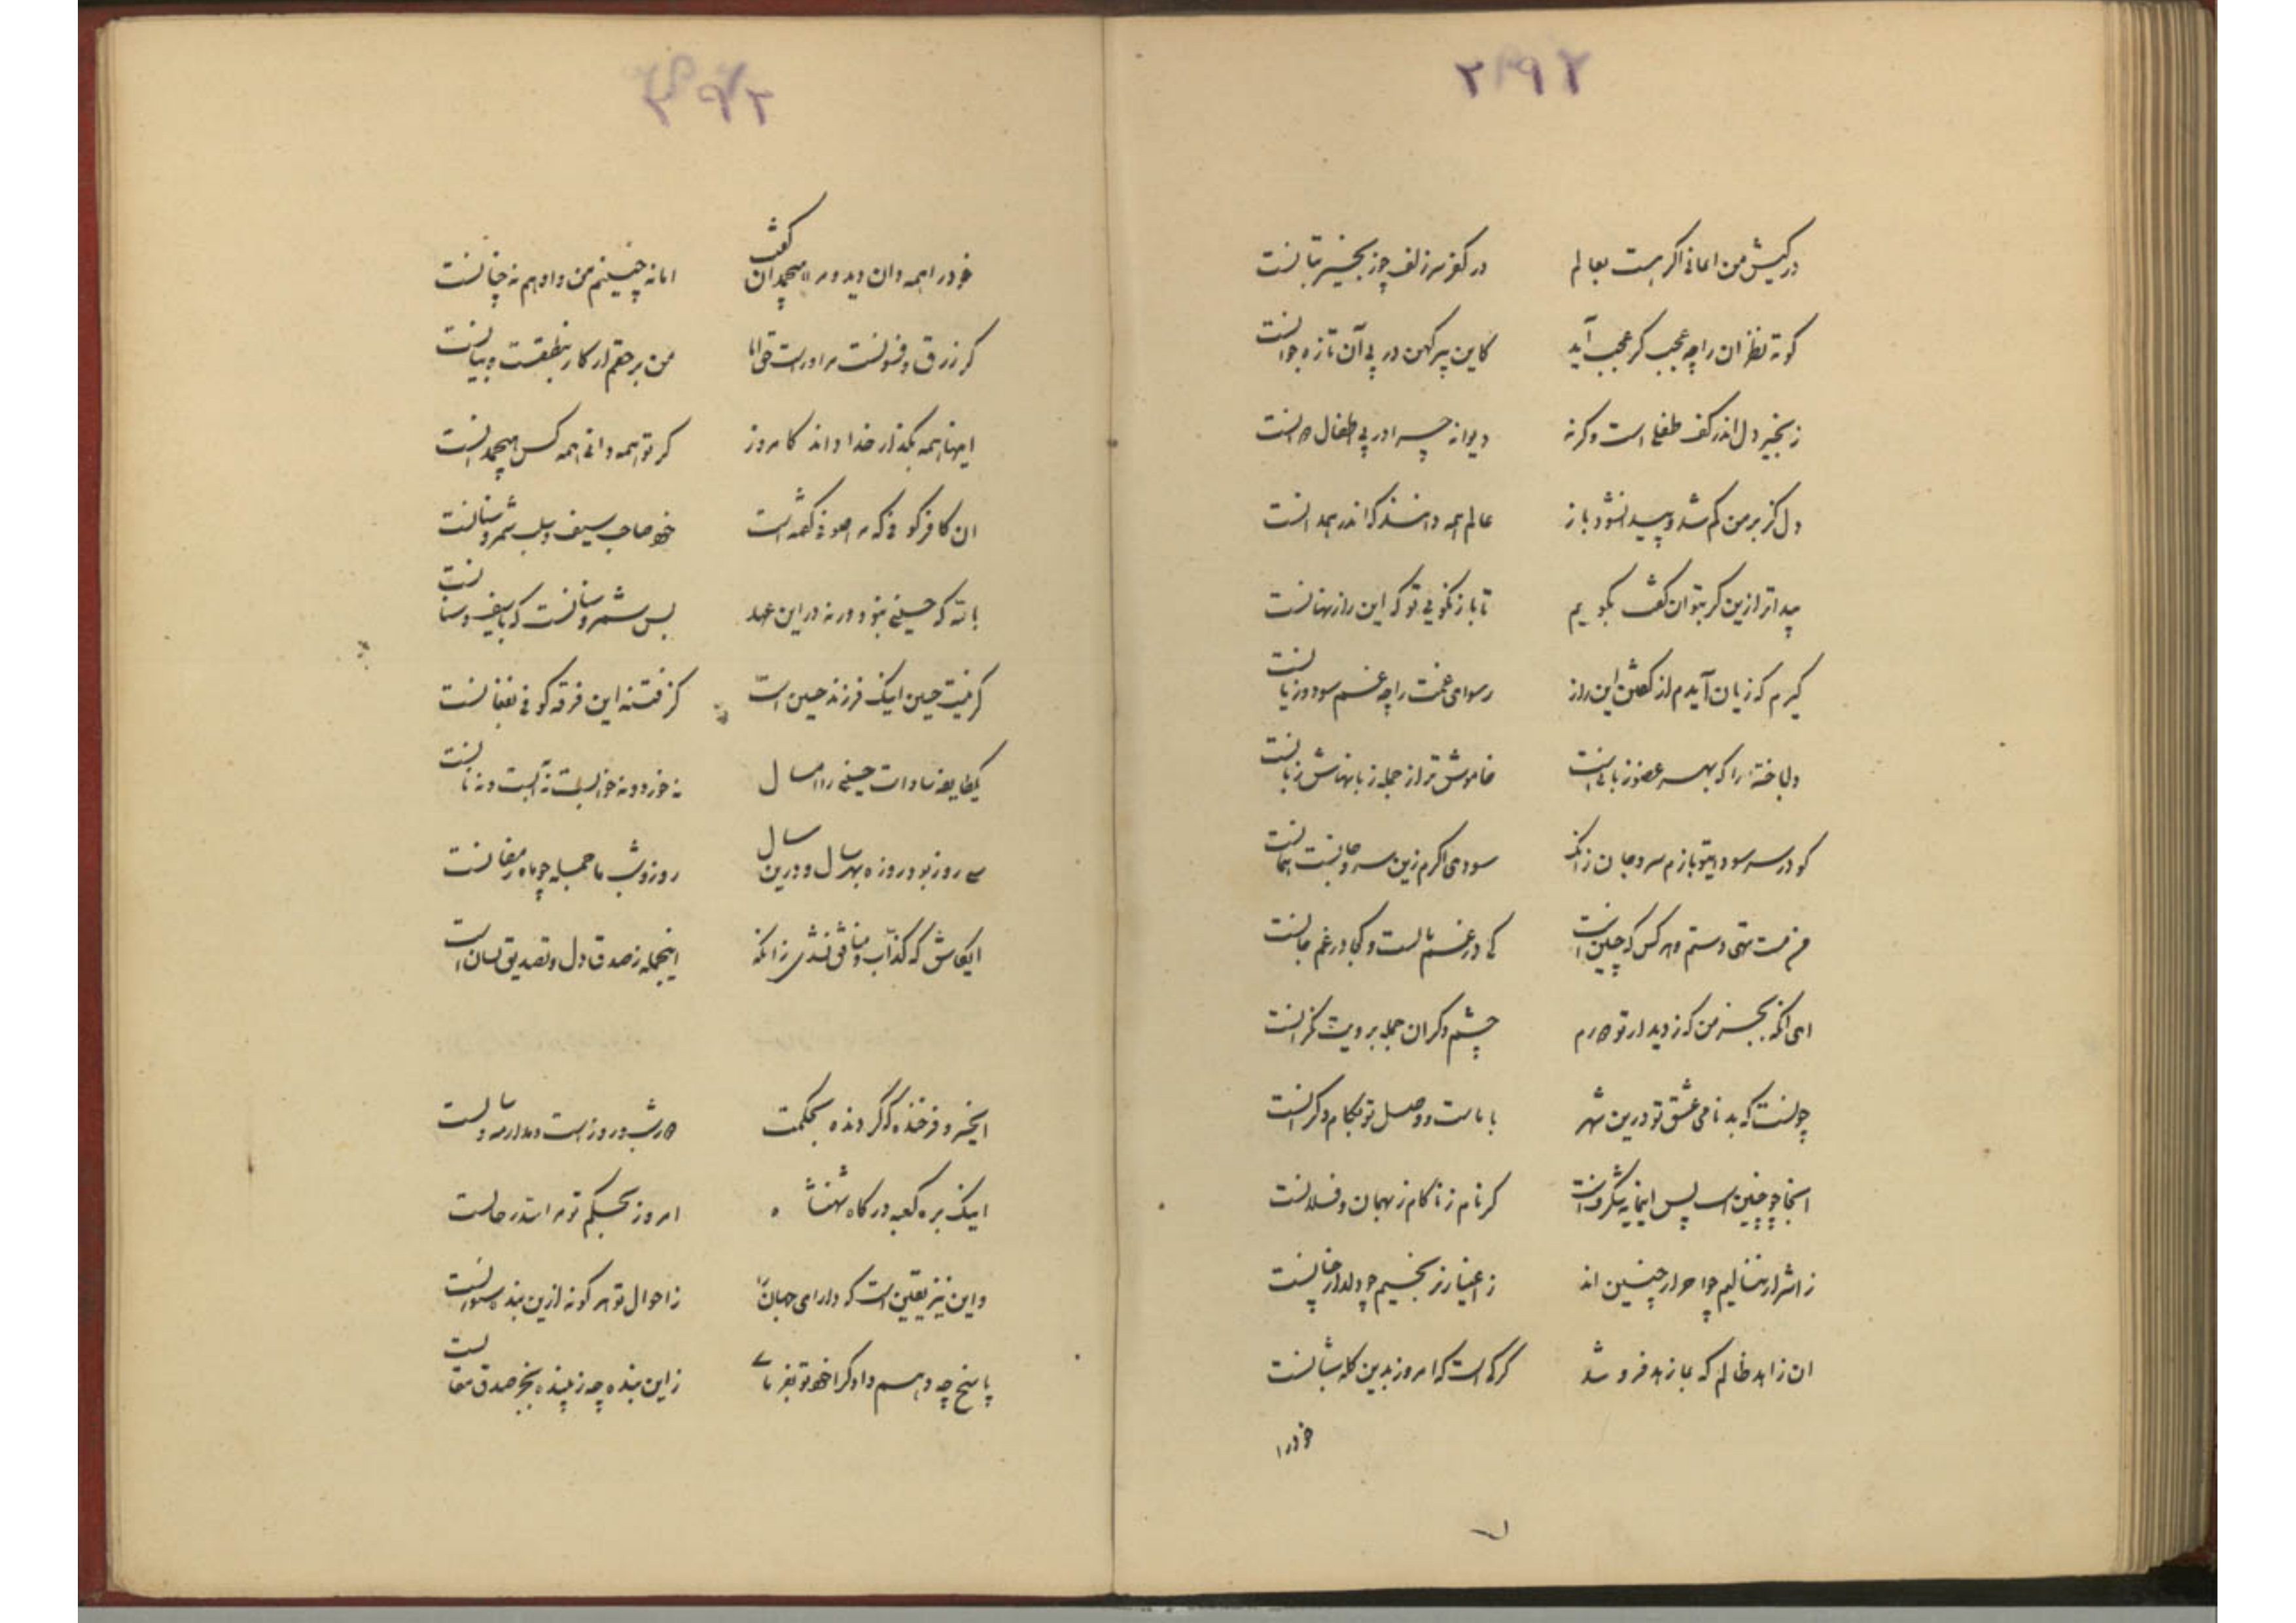 ۲۹۲
در کیش من ایمانی اگر هست بعالم در کفر سر زلف چو زنجیر بتانست
کوته نظران را چه عجب گر عجب آید کاین پیر کهن در پی آن تازه جوانست
زنجیر دل اندر کف طفلی است وگرنه دیوانه چرا در پی اطفال دوانست
دل کز بر من گم شد و پیدا نشود باز عالم همه دانند که اندر همدانست
پیداتر ازین گر بتوان گفت بگویم تا باز نگویی تو که این راز نهانست
گیرم که زیان آیدم از گفتن این راز رسوای غمت را چه غم سود و زیانست
دلباخته را که بهر عضو زبانی است خاموش تر از جمله زبانهاش زبانست
کو در سر سودای تو بازم سر و جان زانک سودی اگرم زین سر و جانست همانست
من مست تهی دستم و هر کس که چنین است کی در غم مالست و کجا در غم جانست
ای آنکه بجز من که ز دیدار تو دورم چشم دگران جمله برویت نگرانست
چونست که بدنامی عشق تو درین شهر با ماست و وصل تو بکام دگرانست
اینجا چو چنین است پس این مایه شگرف است گر نام ز ما کام ز بهمان و فلانست
ز اشرار ننالیم چو احرار چنین اند ز اغیار نرنجیم چو دلدار چنانست
ان زاهد ظالم که بما زهد فروشد گرگی است که امروز بدین گله شبانست
خود را
۲۹۳
خود را همه دان دید و مرا هیچمدان گفت اما نه چنینم من و او هم نه چنانست
گر زرق و فسونست مر او راست حق اما من بر حقم ار کار بنطقست و بیانست
اینها همه بگذار خدا داند کامروز گر تو همه دانی همه کس هیچمدانست
ان کافر کوفی که صوفی کفته است خود صاحب سیف و سلب شمر و سنانست
بالله که حسینی نبود ورنه در این عهد بس شمر و سنانست که با سیف و سنانست
گر نیست حسین اینک فرزند حسین است کز فتنه این فرقه کوفی بفغانست
یکطایفه سادات حسینی را امسال نه خورد و نه خوابست نه آبست و نه نانست
سی روز بود روزه بهر سال و درین سال روز و شب ما جمله چو ماه رمضانست
ایکاش که کذاب و منافق نشدی زانکه اینجمله ز صدق دل و تصدیق لسان است
ایخسرو فرخنده که گردنده بحکمت
اینک بره کعبه درگاه شهنشاه امروز بحکم تو مرا
واین نیز یقین است که دارای جهان را ز احوال تو هر گونه ازین بنده سئوالست
پاسخ چه دهم داد گرا خود تو بفرمای زاین بنده چه زیبنده بجز صدق مقالست